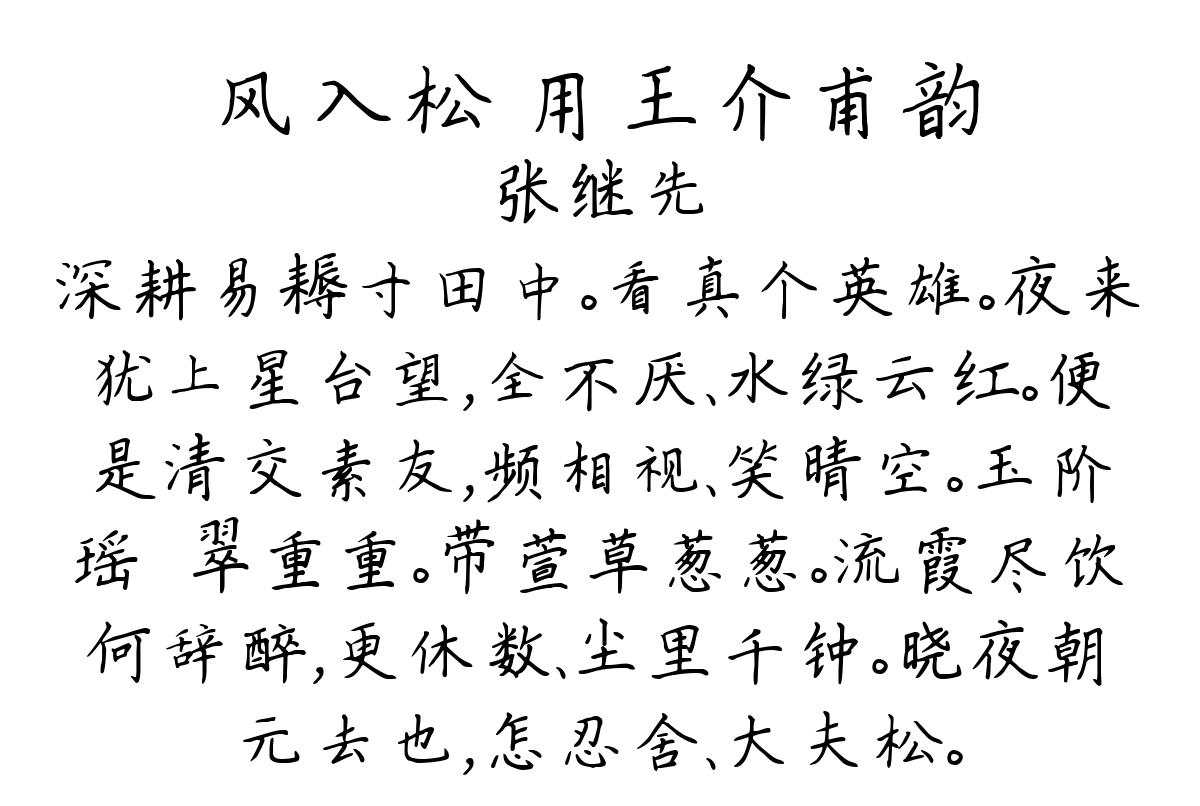 风入松 用王介甫韵
张继先
深耕易耨寸田中。看真个英雄。夜来
犹上星台望,全不厌、水绿云红。便
是清交素友,频相视、笑晴空。玉阶
瑶 翠重重。带萱草葱葱。流霞尽饮
何辞醉,更休数、尘里千钟。晓夜朝
元去也,怎忍舍、大夫松。